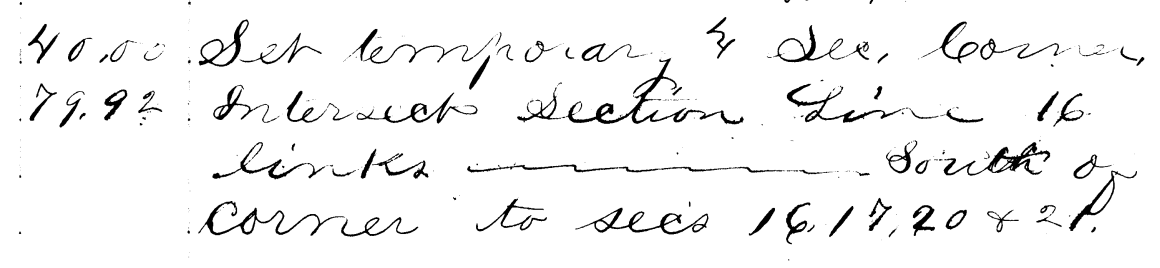 40.00 Set temporary ¼ Sec. Corner.
79.92 Intersect Section Line 16
links ——— South of
Corner to secs 16, 17, 20 & 21.